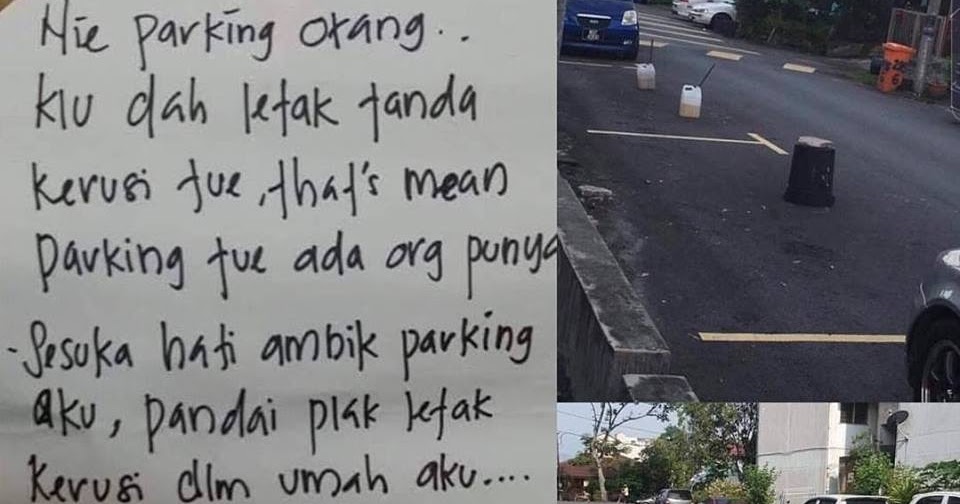 Nie parking orang..
klu dah letak tanda
kerusi tue, that's mean
parking tue ada org punya
- Sesuka hati ambik parking
aku, pandai plak letak
kerusi dlm umah aku....